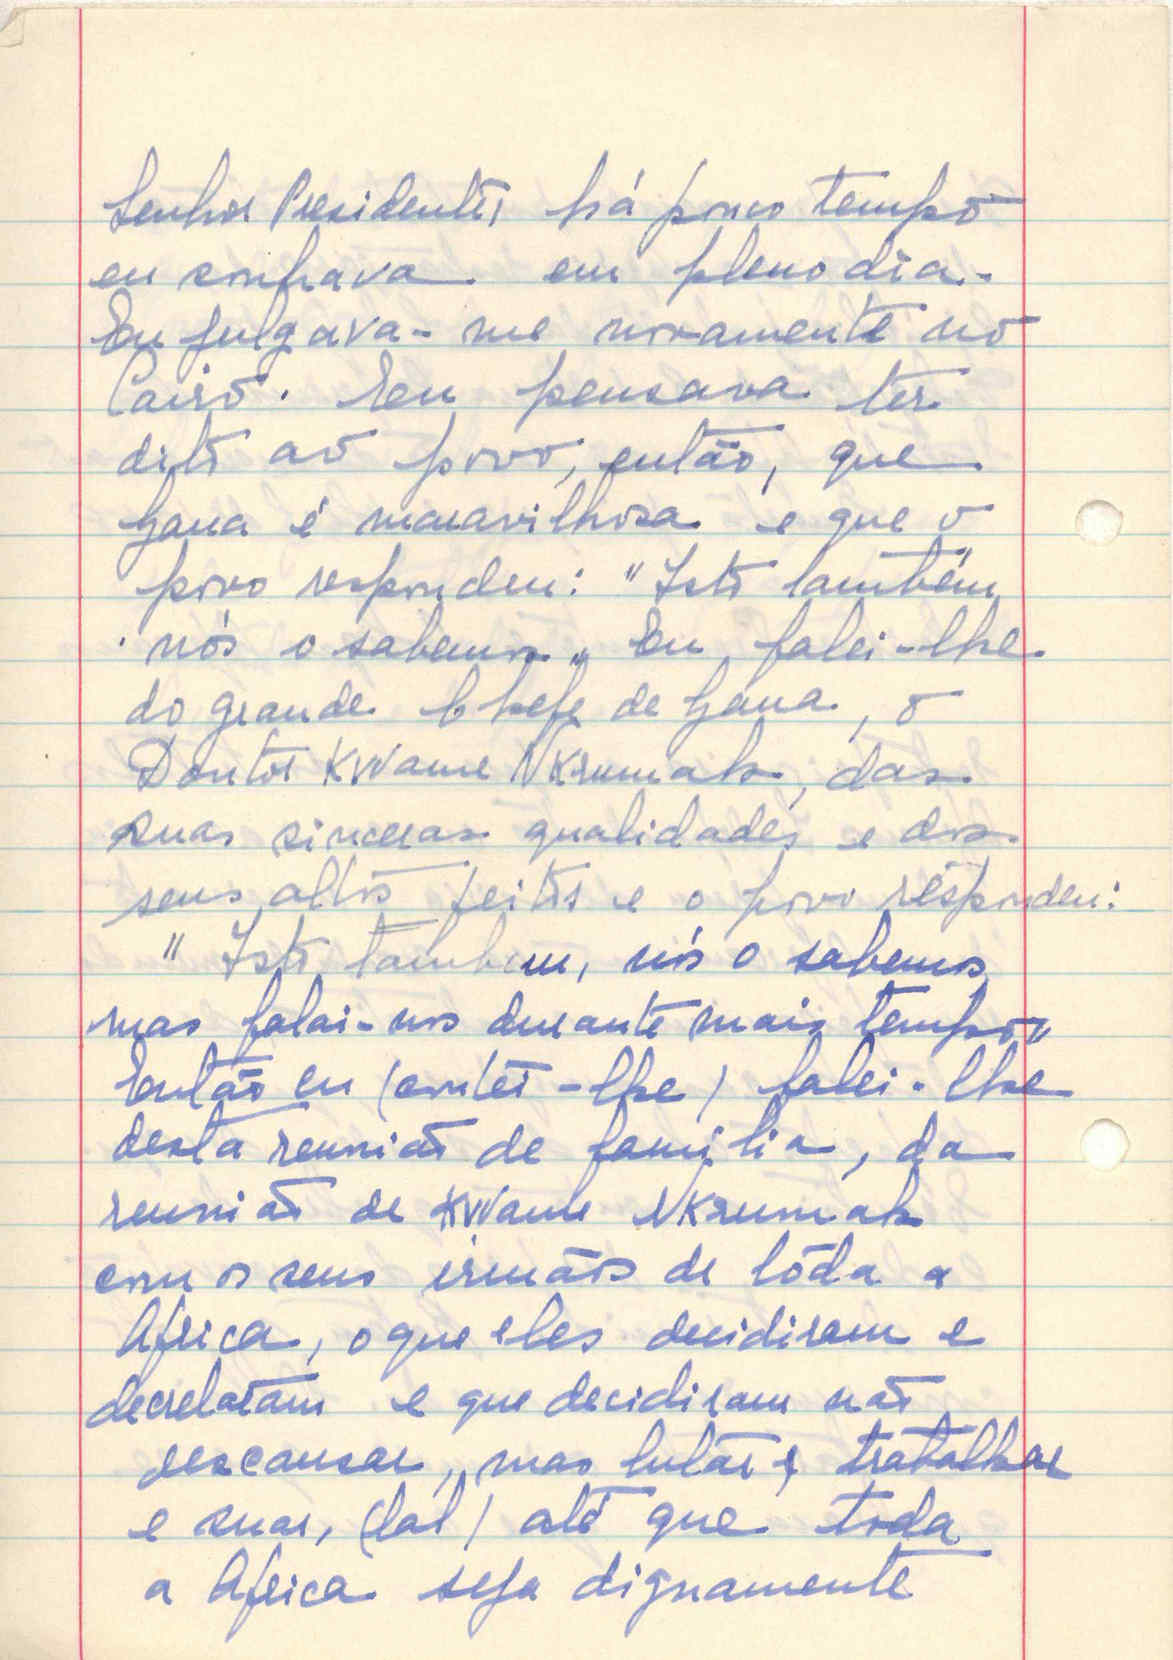 Senhor Presidente, há pouco tempo
eu sonhava em pleno dia.
Eu julgava-me novamente no
Cairo. Eu pensava ter
dito ao povo, então, que
Gana é maravilhosa e que o
povo respondeu: "Isto também
nós o sabemos" Eu falei-lhe
do grande Chefe de Gana, o
Doutor Kwame Nkrumah, das
suas sinceras qualidades e dos
seus altos feitos e o povo respondeu:
"Isto também, nós o sabemos
mas falai-nos durante mais tempo"
Então eu (contei-lhe) falei-lhe
desta reunião de família, da
reunião de Kwame Nkrumah
com os seus irmãos de tôda a
Africa, o que eles decidiram e
decretaram e que decidiram não
descansar, mas lutar e trabalhar
e suar, (lal) até que toda
a Africa seja dignamente